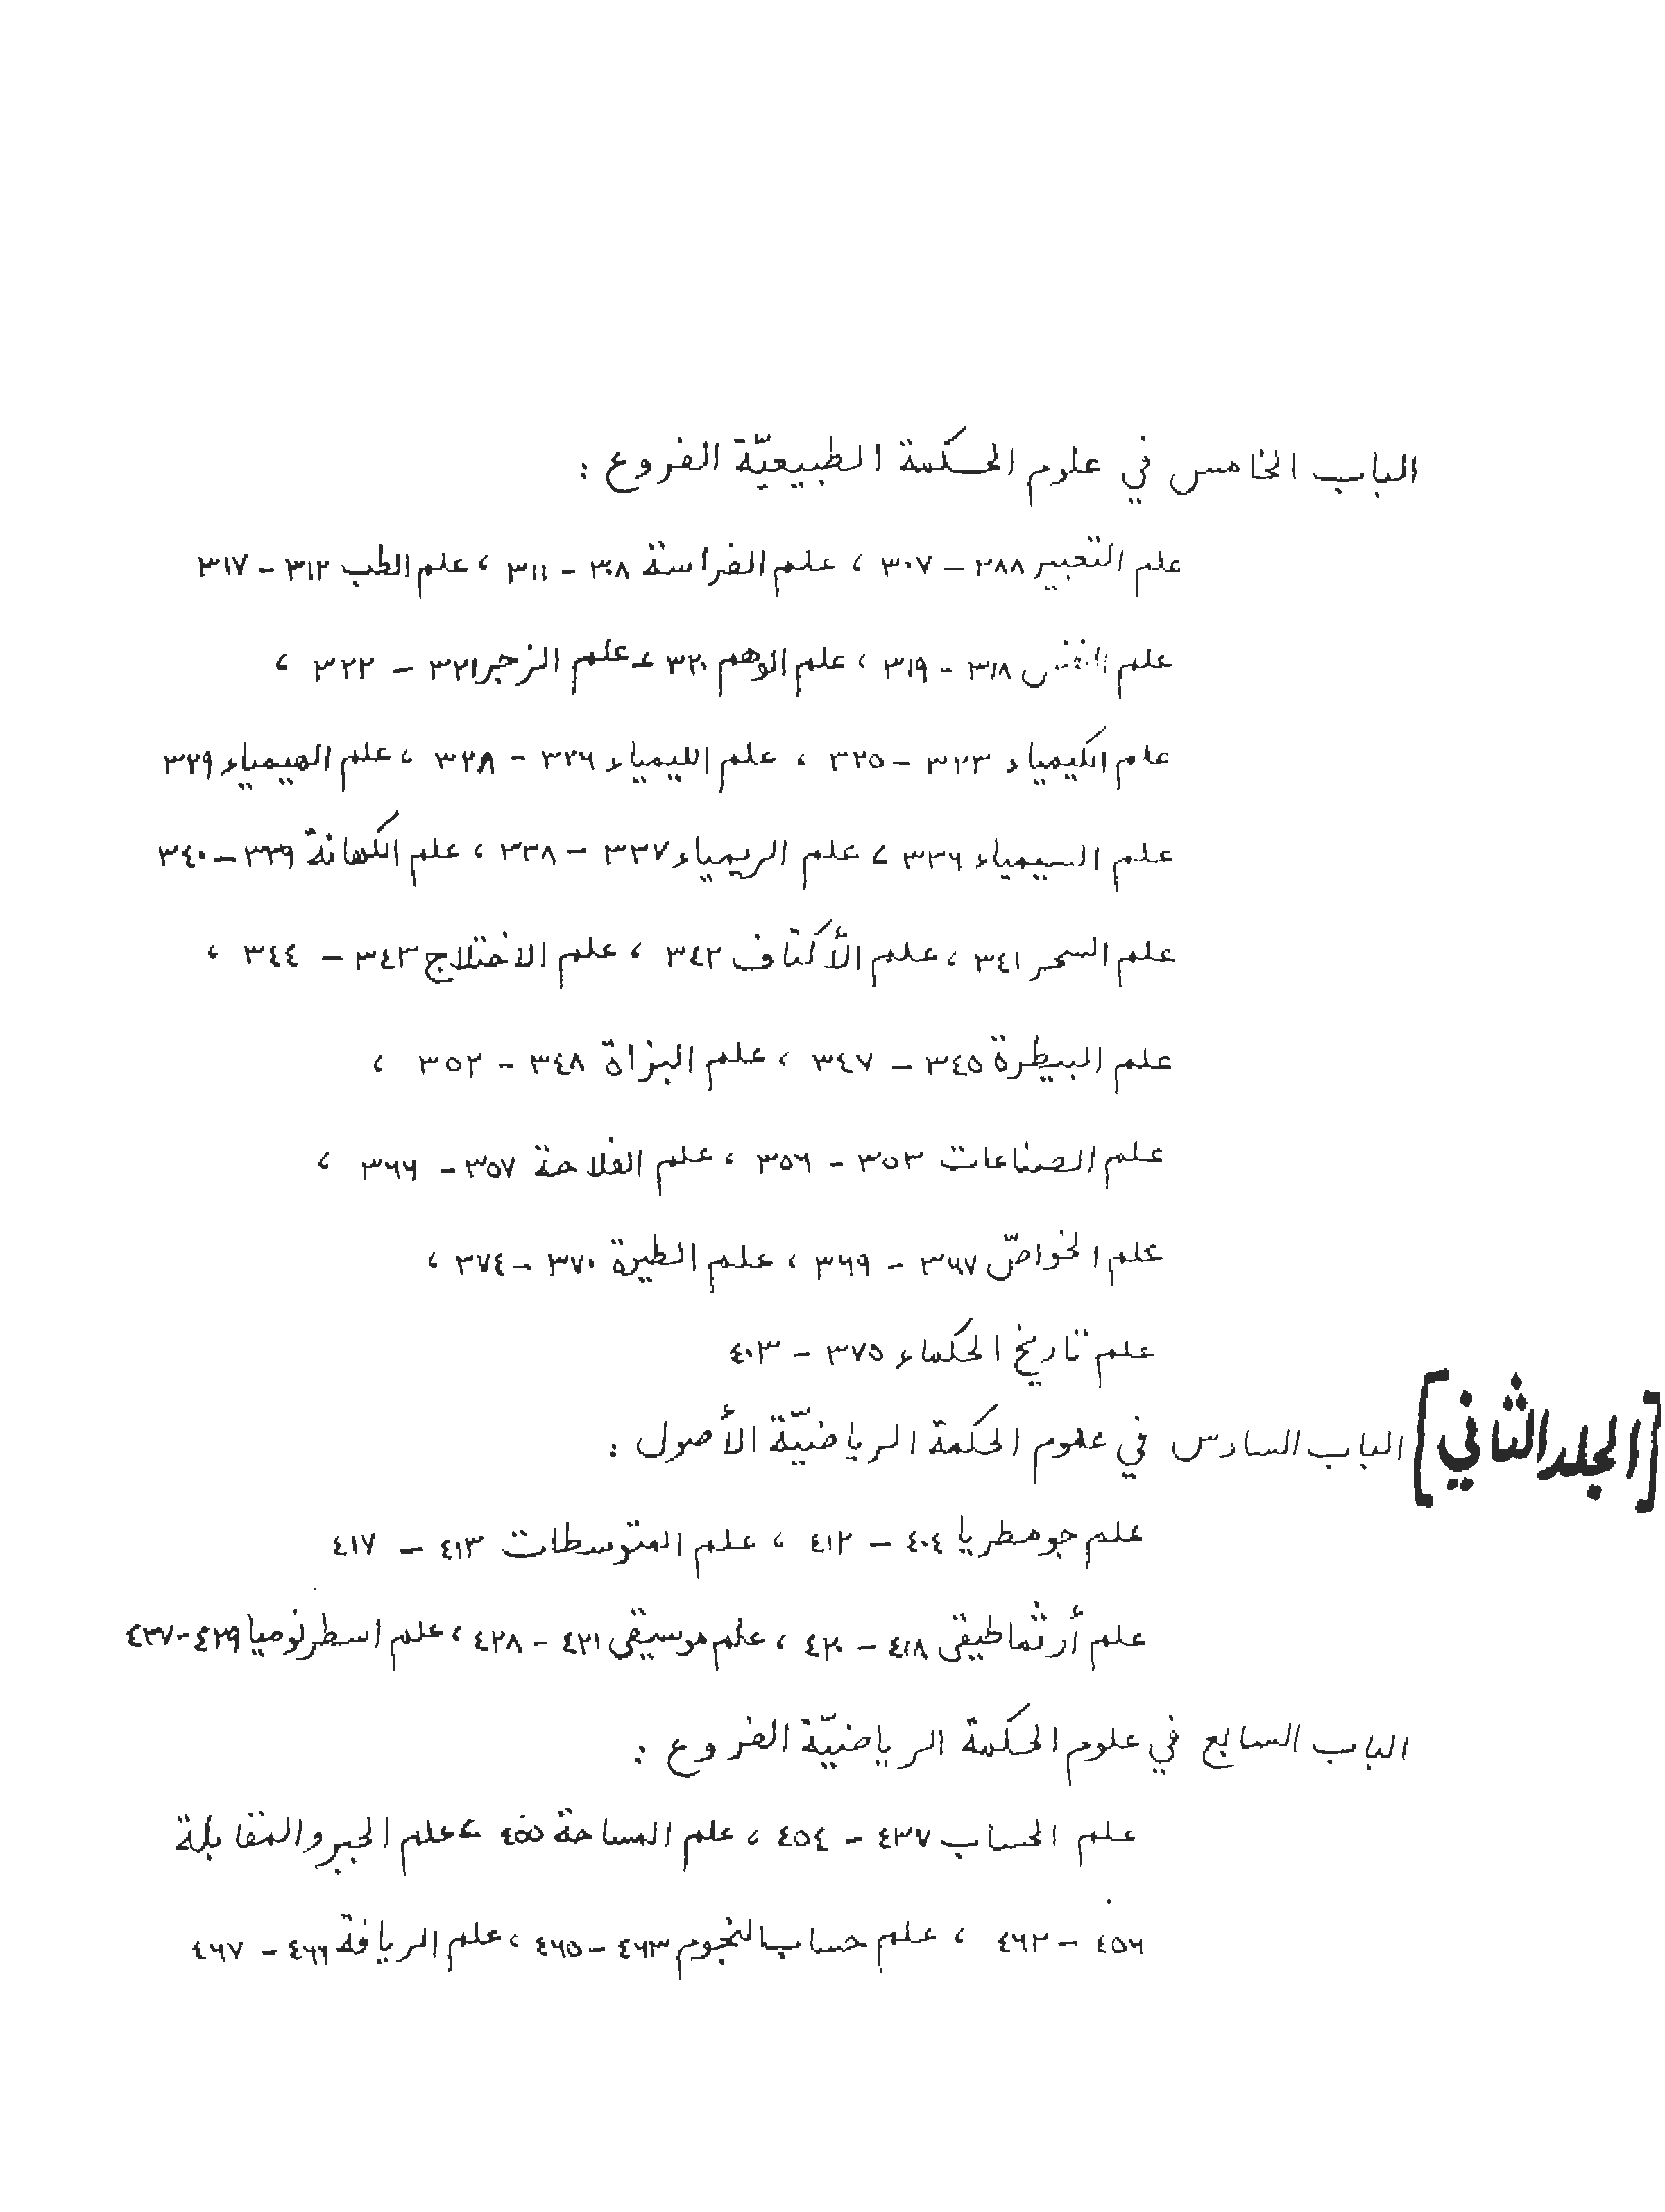 الباب الخامس في علوم الحكمة الطبيعيّة الفروع :
علم التعبير ٢٨٨ – ٣٠٧ ، علم الفراسة ٣٠٨ – ٣١١ ، علم الطب ٣١٢ – ٣١٧
علم النفس ٣١٨ – ٣١٩ ، علم الوهم ٣٢٠ ، علم الزجر ٣٢١ – ٣٢٢ ،
علم الكيمياء ٣٢٣ – ٣٢٥ ، علم الليمياء ٣٢٦ – ٣٢٨ ، علم الهيمياء ٣٢٩
علم السيمياء ٣٣٦ ، علم الريمياء ٣٣٧ – ٣٣٨ ، علم الكهانة ٣٣٩ – ٣٤٠
علم السحر ٣٤١ ، علم الأكتاف ٣٤٢ ، علم الاختلاج ٣٤٣ – ٣٤٤ ،
علم البيطرة ٣٤٥ – ٣٤٧ ، علم البزاة ٣٤٨ – ٣٥٢ ،
علم الصناعات ٣٥٣ – ٣٥٦ ، علم الفلاحة ٣٥٧ – ٣٦٦ ،
علم الخواصّ ٣٦٧ – ٣٦٩ ، علم الطيرة ٣٧٠ – ٣٧٤ ،
علم تاريخ الحكماء ٣٧٥ – ٤٠٣
[المجلد الثاني] الباب السادس في علوم الحكمة الرياضيّة الأصول :
علم جومطريا ٤٠٤ – ٤١٢ ، علم المتوسطات ٤١٣ – ٤١٧
علم أرثماطيقى ٤١٨ – ٤٢٠ ، علم موسيقى ٤٢١ – ٤٢٨ ، علم اسطرنوميا ٤٢٩ – ٤٣٧
الباب السابع في علوم الحكمة الرياضيّة الفروع :
علم الحساب ٤٣٧ – ٤٥٤ ، علم المساحة ٤٥٥ ، علم الجبر والمقابلة
٤٥٦ – ٤٦٢ ، علم حساب النجوم ٤٦٣ – ٤٦٥ ، علم الريافة ٤٦٦ – ٤٦٧